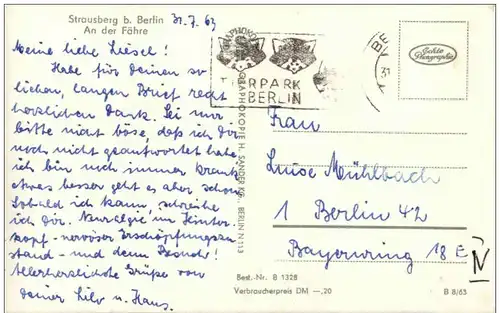 Strausberg b. Berlin
An der Fähre
31.7.63
Meine liebe Liesel!
Habe für Deinen so
lieben, langen Brief recht
herzlichen Dank. Sei mir
bitte nicht böse, daß ich Dir
noch nicht geantwortet habe,
ich bin noch immer krank,
etwas besser geht es aber schon.
Sobald ich kann, schreibe
ich Dir. Neuralgie im Hinter-
kopf - nervöser Erschöpfungszu-
stand - und dann Besuch!
Allerherzlichste Grüße von
Deiner u. Hans.
TIERPARK
BERLIN
Echte
Photographie
PHOKOPIE H. SANDER KG., BERLIN N 113
Frau
Luise Mühlbach
1 Berlin 42
Bayernring 18 E
N
Best.-Nr. B 1328
Verbraucherpreis DM —,20
B 8/63